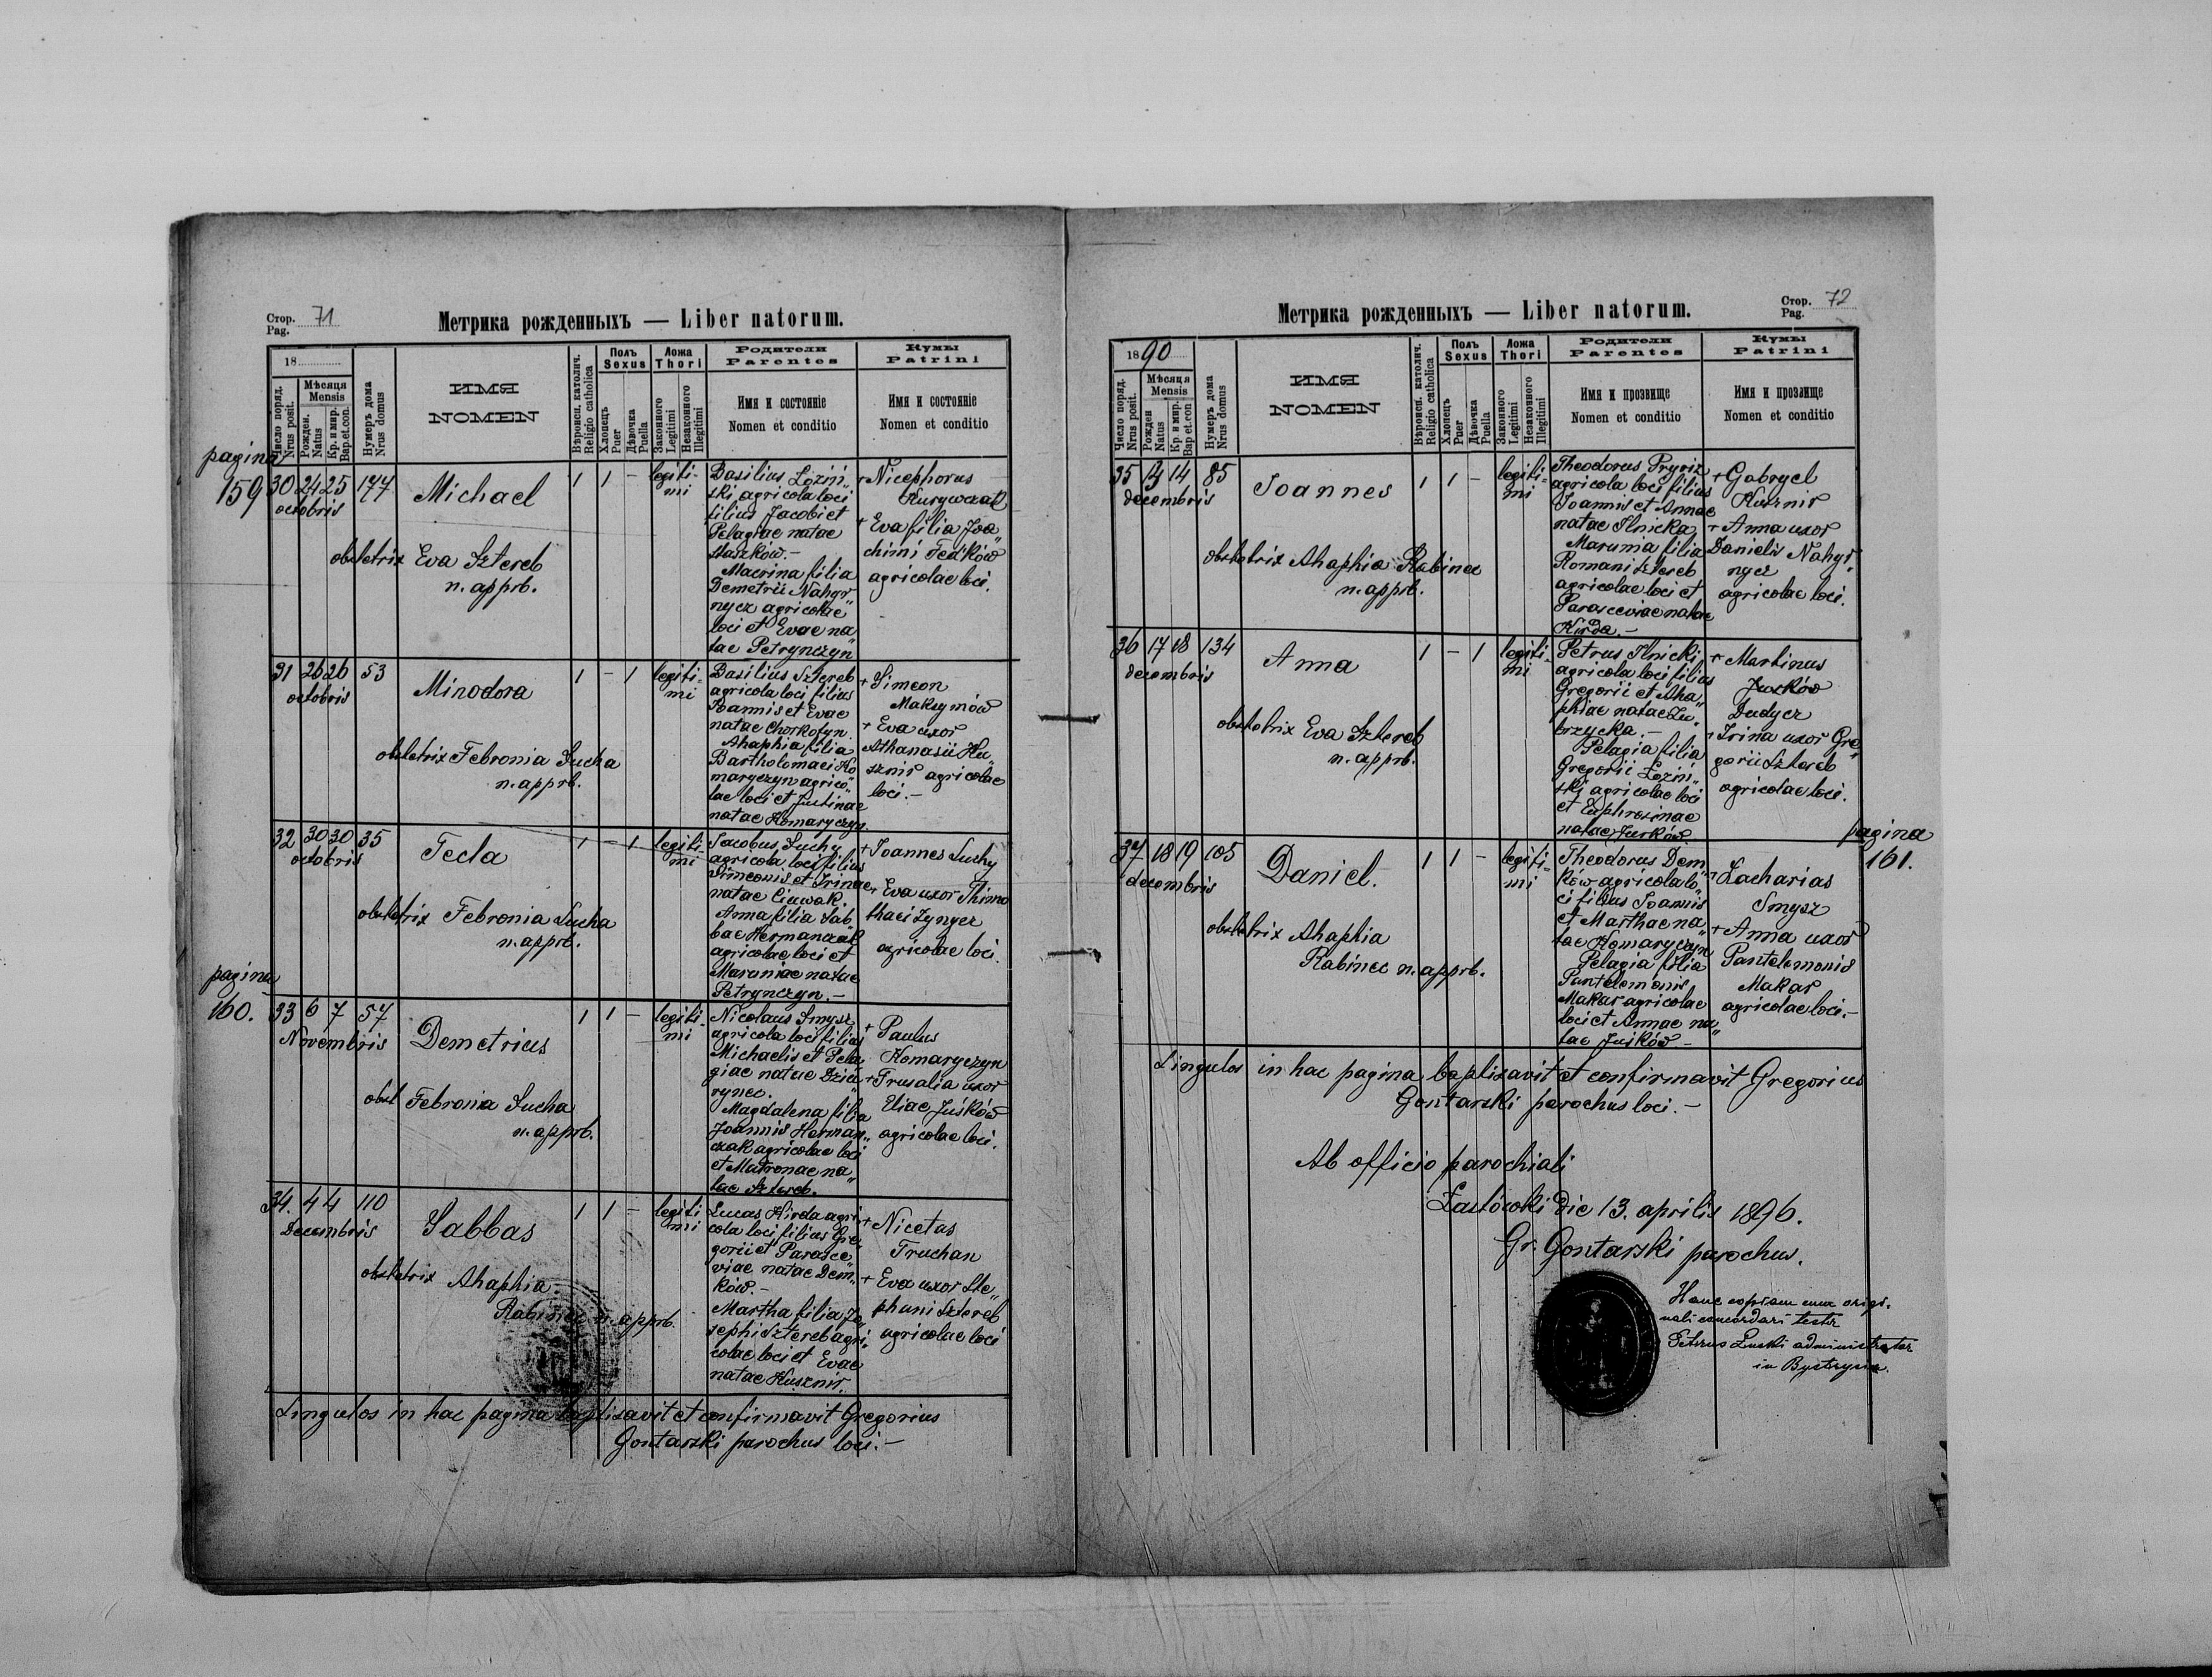 Стор. 71
Pag.
Метрика рожденныхъ — Liber natorum.
18
Число поряд.
Nrus posit.
Мѣсяця
Mensis
Рожден.
Natus
Кр. и мир.
Bap.et.con.
Нумеръ дома
Nrus domus
ИМЯ
NOMEN
Вѣроисп. католич.
Religio catholica
Полъ
Sexus
Хлопецъ
Puer
Дѣвочка
Puella
Ложа
Thori
Законного
Legitimi
Незаконного
Illegitimi
Родители
Parentes
Имя и состояніе
Nomen et conditio
Кумы
Patrini
Имя и состояніе
Nomen et conditio
pagina
159
30 24 25 177
octobris
Michael
1 1 - legiti-
mi
obstetrix Eva Sztereb
n. apprb.
Basilius Loziń„
ski agricola loci
filius Jacobi et
Pelagiae natae
Staszków.-
Macrina filia
Demetrii Nahyr„
nycz agricolae
loci et Evae na„
tae Petrynczyn
+ Nicephorus
Kurywczak
+ Eva filia Joa„
chimi Fedków
agricolae loci.
31 26 26 53
octobris
Minodora
1 - 1 legiti-
mi
obstetrix Febronia Sucha
n. apprb.
Basilius Sztereb
agricola loci filius
Joannis et Evae
natae Chorkotyn.
Ahaphia filia
Bartholomaei Ko
maryczyn agrico„
lae loci et Justinae
natae Komaryczyn.
+ Simeon
Maksymów
+ Eva uxor
Athanasii Ku„
sznir agricolae
loci.-
32 30 30 35
octobris
Tecla
1 - 1 legiti-
mi
obstetrix Febronia Sucha
n. apprb.
Jacobus Suchy
agricola loci filius
Simeonis et Irinae
natae Ciuwak.
Anna filia Sab„
bae Hermanczak
agricolae loci et
Maruniae natae
Petrynczyn.-
+ Joannes Suchy
+ Eva uxor Thimo
thaei Zynycz
agricolae loci.
pagina
160.
33 6 7 57
Novembris
Demetrius
1 1 - legiti-
mi
obst Febronia Sucha
n. apprb.
Nicolaus Smysz
agricola loci filius
Michaelis et Pela„
giae natae Dziu„
rynec.
Magdalena filia
Joannis Herman„
czak agricolae loci
et Matronae na„
tae Sztereb.
+ Paulus
Komaryczyn
+ Trusalia uxor
Eliae Juśków
agricolae loci.
34. 4 4 110
Decembris
Sabbas
1 1 - legiti
mi
obstetrix Ahaphia
Rabinec n. apprb.
Lucas Kirda agri„
cola loci filius Gre„
gorii et Parasce„
viae natae Dem„
ków.-
Martha filia Jo„
sephi Sztereb agri„
colae loci et Evae
natae Kusznir.
+ Nicetas
Truchan
+ Eva uxor Ste„
phani Sztereb
agricolae loci
Singulos in hac pagina baptisavit et confirmavit Gregorius
Gontarski parochus loci.-
Метрика рожденныхъ — Liber natorum.
Стор. 72
Pag.
1890
Число поряд.
Nrus posit.
Мѣсяця
Mensis
Рожден
Natus
Кр. и мир.
Bap et.con
Нумеръ дома
Nrus domus
ИМЯ
NOMEN
Вѣроисп. католич.
Religio catholica
Полъ
Sexus
Хлопецъ
Puer
Дѣвочка
Puella
Ложа
Thori
Законного
Legitimi
Незаконного
Illegitimi
Родители
Parentes
Имя и прозвище
Nomen et conditio
Кумы
Patrini
Имя и прозвище
Nomen et conditio
35 14 85
decembris
Joannes
1 1 - legiti-
mi
obstetrix Ahaphia Rabinec
n. apprb.
Theodorus Pryriz
agricola loci filius
Joannis et Annae
natae Ilnicka.
Marunia filia
Romani Sztereb
agricolae loci et
Parasceviae natae
Kirda.-
+ Gabryel
Kusznir
+ Anna uxor
Danielis Nahyr„
nycz
agricolae loci.
36 17 18 134
decembris
Anna
1 - 1 legiti-
mi
obstetrix Eva Sztereb
n. apprb.
Petrus Ilnicki
agricola loci filius
Gregorii et Aha„
phiae natae Zu„
brzycka.-
Pelagia filia
Gregorii Loziń„
ski agricolae loci
et Euphrosinae
natae Juśków
+ Martinus
Juzków
Dudycz
+ Irina uxor Gre„
gorii Sztereb
agricolae loci.
pagina
161.
37 18 19 105
decembris
Daniel.
1 1 - legiti-
mi
obstetrix Ahaphia
Rabinec n. apprb.
Theodorus Dem„
ków agricola lo„
ci filius Joannis
et Marthae na„
tae Komaryczyn
Pelagia filia
Pantelemonis
Makar agricolae
loci et Annae na„
tae Juśków-
+ Zacharias
Smysz
+ Anna uxor
Pantelemonis
Makar
agricolae loci.-
Singulos in hac pagina baptisavit et confirmavit Gregorius
Gontarski parochus loci.-
Ab officio parochiali
Zastówki die 13. aprilis 1896.
Gr. Gontarski parochus.
Hanc copiam cum origi„
nali concordari testor
Petrus administrator
in